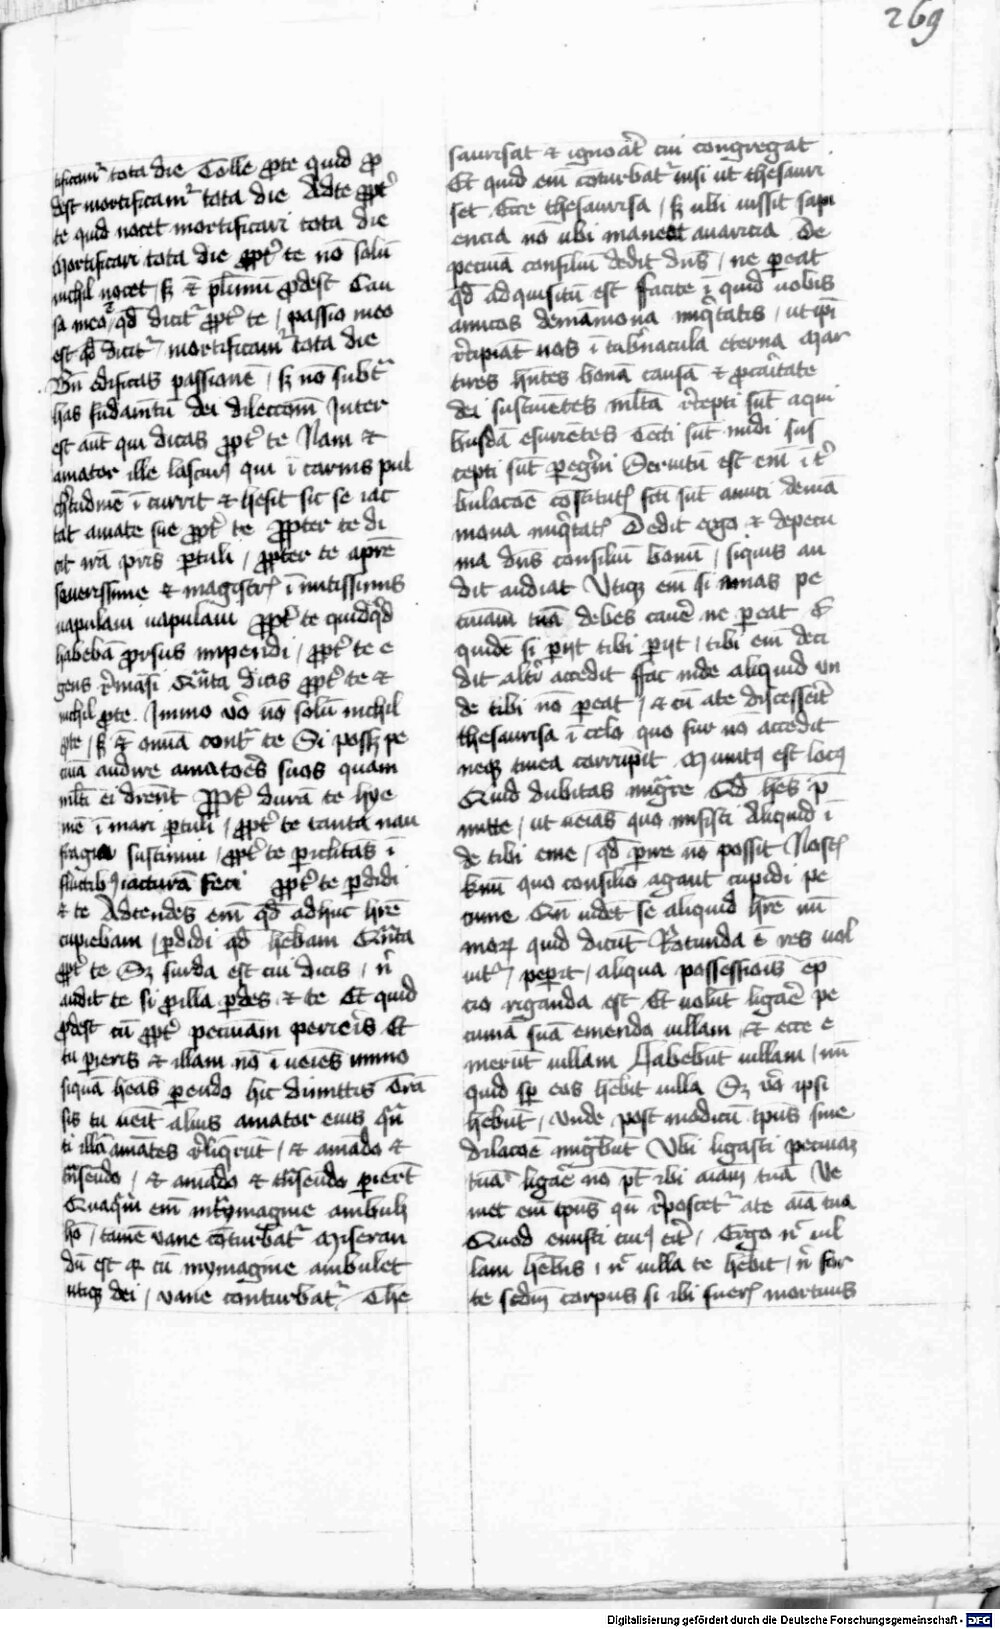 269
tificam᷑ tota die Tolle ꝓte quid ꝓ
dest mortificam᷑ tota die Adte ꝓpt̉
te quid nocet mortificari tota die
Mortificari tota die ꝓpt̉ te nō solū
nichil nocet / sꝫ ⁊ plimū ꝓdest Cau
sa meo qd̄ dicit᷑ ꝓpt̉ te / passio meo
est qd̄ dicit᷑ / mortificam᷑ tota die
Bn̄ edificas passionē / sꝫ nō subt᷑
has fūdamtū dei dileccōm Inter
est aūt qui dicas ꝓpt̉ te Nam et
amator ille lasciuꝰ qui ī carnis pul
chtudinē īcurrit ⁊ hesit sic se iac
tat amate sue ꝓpt̉ te ꝓpter te di
cit irā pr̄is ꝑtuli / ꝓpter te aprē
seuerissime ⁊ magistꝝ īmitissimis
uapulam uapulaui ꝓpt̉ te quidqͥd
habebā ꝓrsus impendi / ꝓpt̉ te e
gens r̉māsi Qn̄ta dicis ꝓpt̉ te et
nichil ꝓte Immo v̉o nō solū nichil
ꝓte / sꝫ ⁊ omīa cont᷑ te Si possꝫ pe
cuīa audire amatores suos quam
ml̄ti ei dicēnt ꝓpt̉ durā te hye
mē ī mari ꝑtuli / ꝓpt̉ te tanta nau
fragia sustinui / ꝓpt̉ te ꝑiclitas ī
fluctibꝰ iacturā feci ꝓpt̉ te ꝑdidi
⁊ te Adtendēs em̄ qd̄ adhuc hr̄e
cupiebam / ꝑdidi qd̄ hēbam Qn̄ta
ꝓpt̉ te Sꝫ surda est cui dicis / n̉
audit te si ꝓilla ꝑdes ⁊ te Et quid
ꝓdest cū ꝓpt̉ pecuniam perieris Et
tu pieris ⁊ illam nō īueīes immo
siquā heās ꝑeundo hic dimittis Trā
sis tu ueīt alius amator eius qn̄
ti illā amātes r̉liqͣrūt / ⁊ amādo et
tn̄seūdo / ⁊ amādo ⁊ tn̄seūdo pierēt
Quāqͣm em̄ inymagine ambulꝫ
hō / tamē vane cōturbat᷑ Miseran
dū est qꝛ cū inymagine ambulet
utiqꝫ dei / vane conturbat᷑ The
saurisat ⁊ ignoāt cui congregat
Et quid em̄ cōturbat᷑ nisi ut thesauri
set Ecce thesaurisa / sꝫ ubi iussit sapi
encia nō ubi manedt auaricia De
pecuīa consiliū dedit dn̄s / ne ꝑeat
qd̄ adquisitū est ffacite ī quid uobis
amicos demāmona iniq̉tatis / ut ip̄i
r̉cipiāt uos ī tab̉nacula eterna Mar
tires hn̄tes bonā causā ⁊ ꝓcaritate
dei sustinētes ml̄ta r̉cepti sūt aqui
busdā esuriētes Tecti sūt nudi sus
cepti sūt ꝑegrini Seruitū est em̄ ī t̉
bulacōe cōstitutꝭ sc̄i sūt amici demā
mona iniq̉tatꝭ Dedit ergo ⁊ depecu
nia dn̄s consiliū bonū / siquis au
dit audiat Utiqꝫ em̄ si amas pe
cuniam tuā debes cauē ne ꝑeat E
quidē si ꝑijt tibi ꝑijt / tibi em̄ deci
dit alt̉i accedit ffac inde aliquid un
de tibi nō ꝑeat / ⁊ cū ate discesserit
thesaurisa ī celo quo fur nō accedit
neqꝫ tinea corrūpit Munitꝰ est locꝰ
Quid dubitas mig̉re Qd̄ hēs p̄
mitte / ut ueīas quo misisti Aliquid ī
de tibi eme / qd̄ ꝑire nō possit Nostꝭ
kmī quo consilio agant cupidi pe
cunie Qn̄ uidet se aliquid hr̄e nū
moꝝ quid dicūt Rotunda ē res uol
uit᷑ / peꝑit / aliqua possessiois ep̄
cio riganda est Et uolūt ligaē pe
cuniā suā emenda uillam / ⁊ ecce e
merūt uillam Habebūt uillam / nū
quid sp̄ eos hēbit uilla Sꝫ v̉o ip̄si
hēbūt / vnde post modicū tp̄us sine
dilacōe mig̉būt Ubi ligasti pecuiaꝫ
tuā ligaē nō pt̄ ibi aiam tuā Ve
niet em̄ tp̄us qn̄ r̉poscet᷑ ate aīa tua
Quod emisti cuiꝰ erit / Ergo n̉ uil
lam hēbis / n̉ uilla te hēbit / n̉ for
te scdm̄ corpus si ibi fuerꝭ mortuus
Digitalisierung gefördert durch die Deutsche Forschungsgemeinschaft - DFG